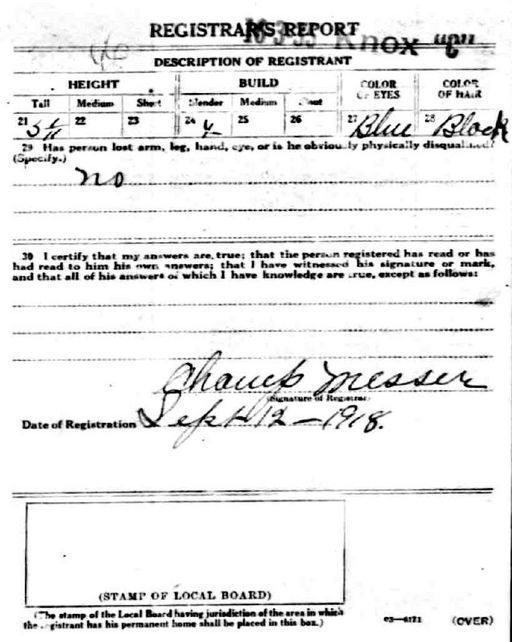 REGISTRAR'S REPORT
Knox "C"
DESCRIPTION OF REGISTRANT
HEIGHT BUILD COLOR OF EYES COLOR OF HAIR
Tall Medium Short Slender Medium Stout
21 22 23 24 25 26 27 Blue 28 Black
29 Has person lost arm, leg, hand, eye, or is he obviously physically disqualified?
(Specify.)
no
30 I certify that my answers are true; that the person registered has read or has
had read to him his own answers; that I have witnessed his signature or mark,
and that all of his answers of which I have knowledge are true, except as follows:
Champ Messer
(Signature of Registrar)
Date of Registration Sept 12-1918.
(STAMP OF LOCAL BOARD)
(The stamp of the Local Board having jurisdiction of the area in which
the registrant has his permanent home shall be placed in this box.)
03-6171 (OVER)